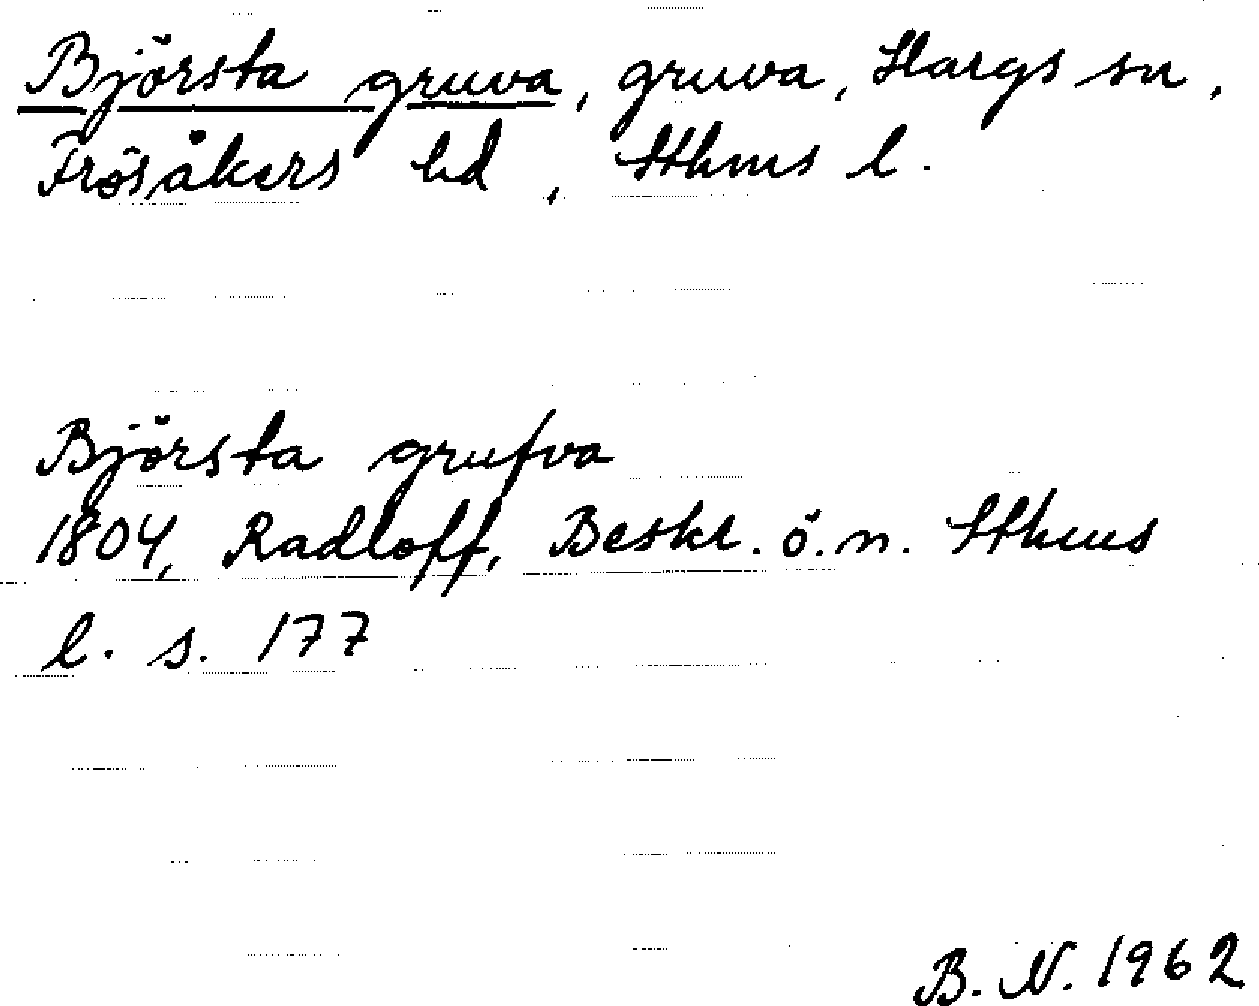 Björsta gruva, gruva, Hargs sn,
Frösåkers hd, Sthms l.
Björsta grufva
1804, Radloff, Beskr. ö. n. Sthms
l. s. 177
B. N. 1962